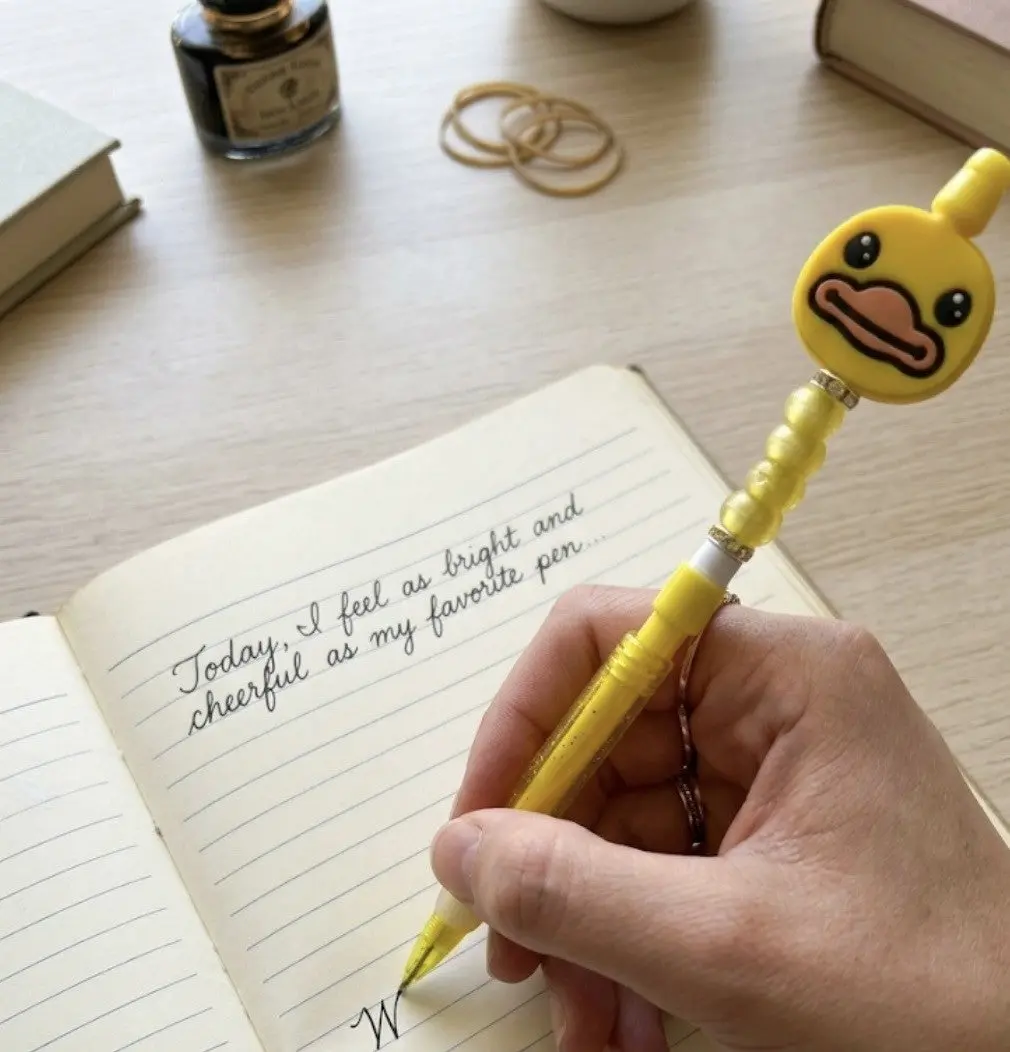 Today, I feel as bright and
cheerful as my favorite pen...
W